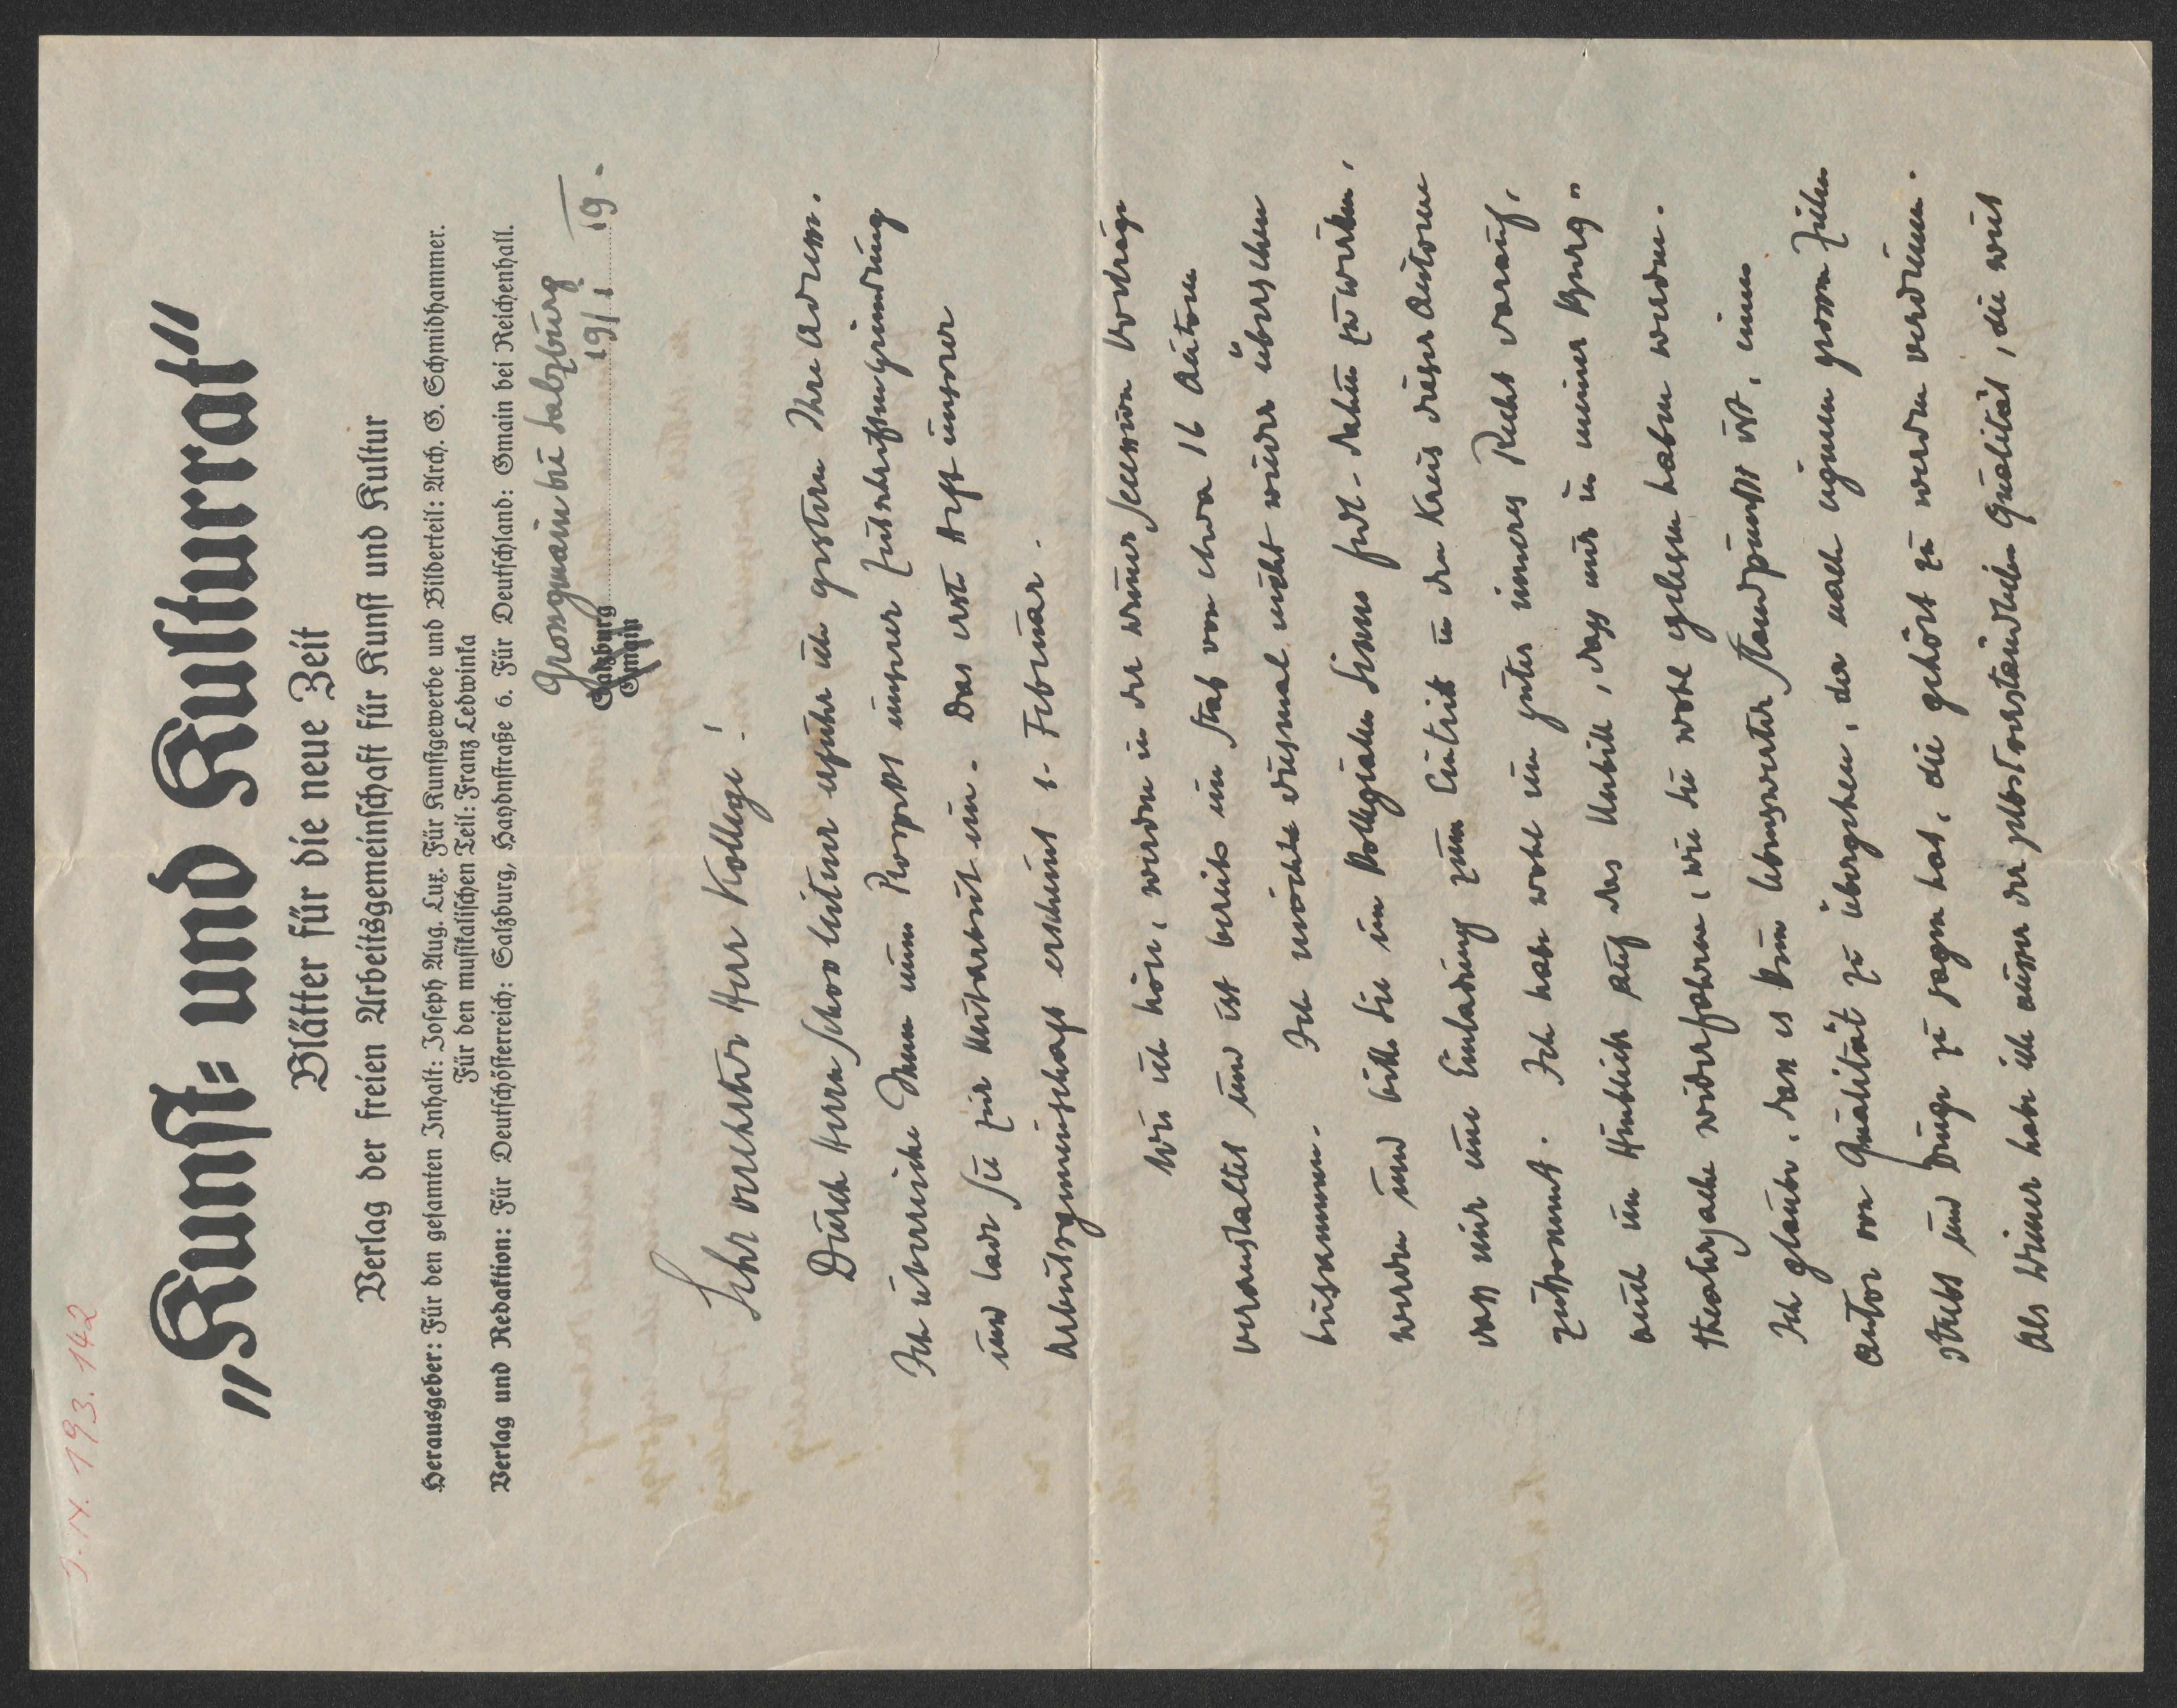 J. N. 193.142
„Kunst= und Kulturrat"
Blätter für die neue Zeit
Verlag der freien Arbeitsgemeinschaft für Kunst und Kultur
Herausgeber: Für den gesamten Inhalt: Joseph Aug. Lux. Für Kunstgewerbe und Bilderteil: Arch. G. Schmidhammer.
Für den musikalischen Teil: Franz Ledwinka
Verlag und Redaktion: Für Deutschösterreich: Salzburg, Haydnstraße 6. Für Deutschland: Gmain bei Reichenhall.
Grossgmain bei Salzburg
Salzburg
Gmain
19/I 19.
Sehr verehrter Herr Kollege!
Durch Herrn Schos leitner erfuhr ich gestern Ihre Adresse.
Ich überreiche Ihnen einen Prospekt unserer Zeitschriftengründung
und lade Sie zur Mitarbeit ein. Das erste Heft unserer
Arbeitsgemeinschaft erscheint 1. Februar.
Wie ich höre, werden in der Wiener Secession Vorträge
veranstaltet und ist bereits ein Stab von etwa 16 Autoren
beisammen. Ich möchte diesmal nicht wieder „übersehen"
werden und bitte Sie im kollegialen Sinne dahin zu wirken,
dass mir eine Einladung zum Eintritt in den Kreis dieser Autoren
zukommt. Ich habe wohl ein gutes inneres Recht darauf,
auch im Hinblick auf das Unbill, dass mir in meiner
Theatersache widerfahren, wie Sie wohl gelesen haben werden.
Ich glaube, dass es kein Standpunkt ist, einen
Autor von Qualität zu übergehen, der nach eigenen grossen Zielen
strebt und Dinge zu sagen hat, die gehört zu werden verdienen.
Als Wiener habe ich ausser der selbstverständlichen Qualität, die weit